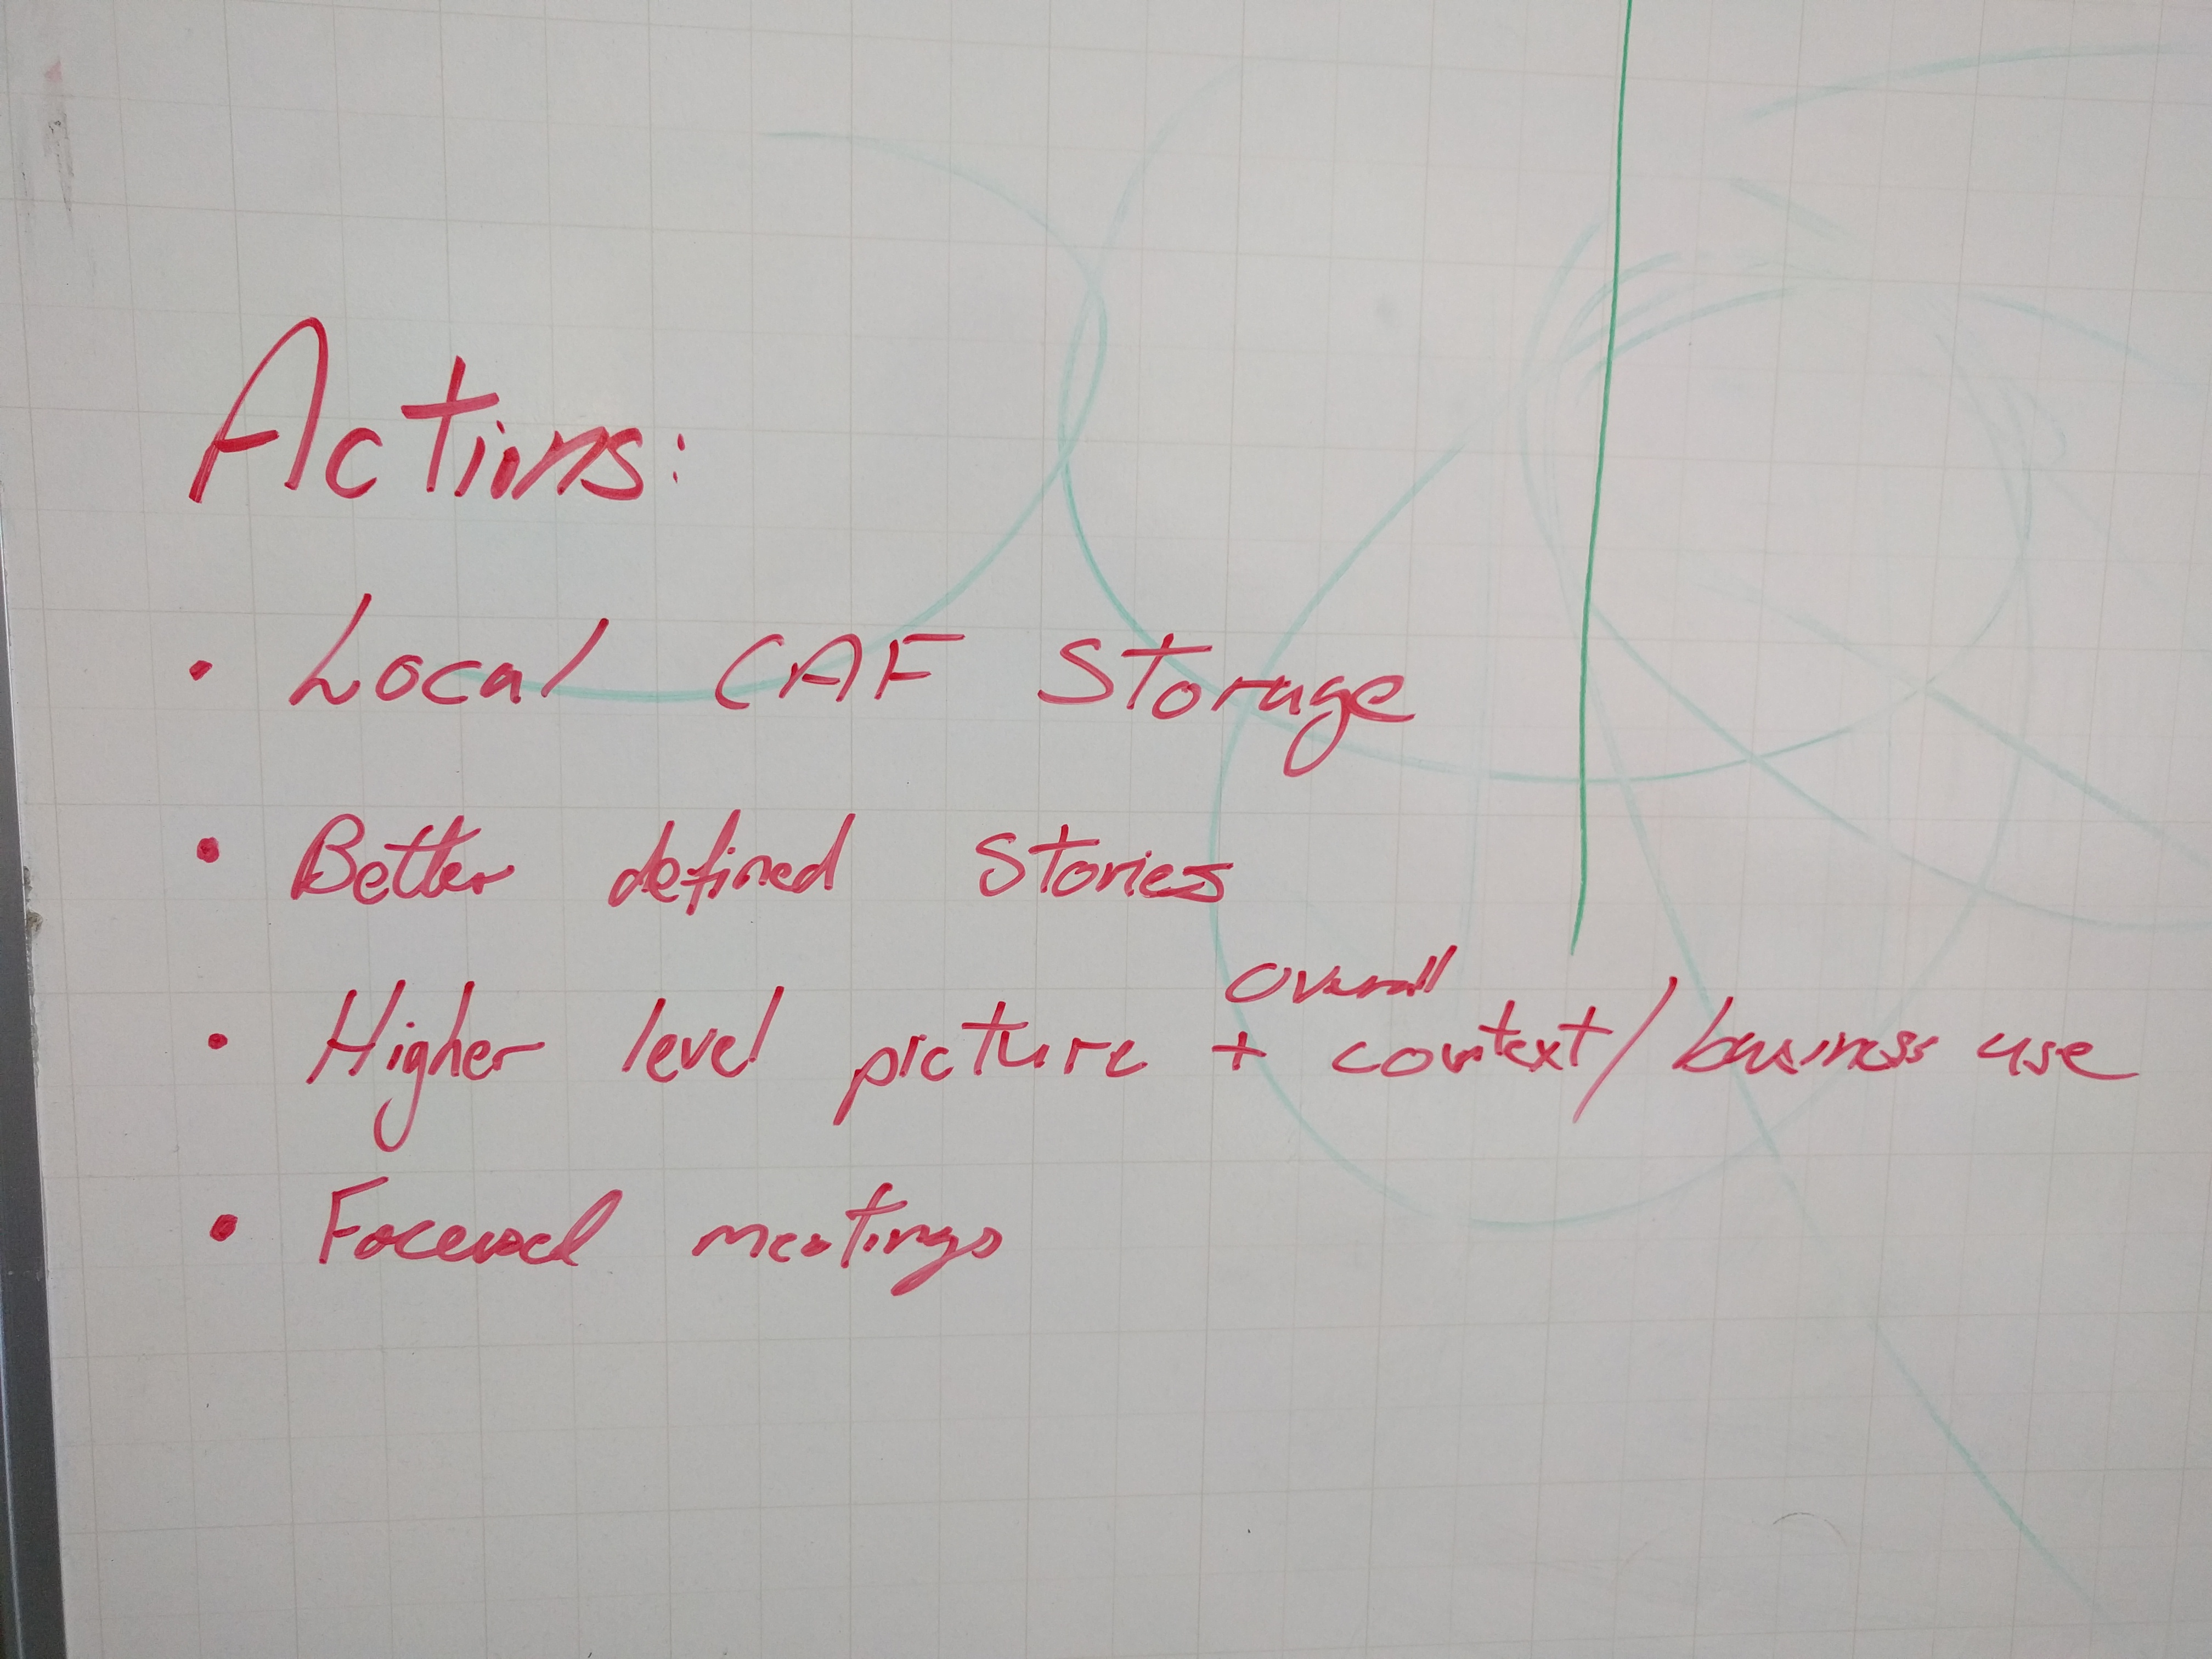 Actions:
• Local CAF Storage
• Better defined Stories
• Higher level picture + overall context / business use
• Focused meetings